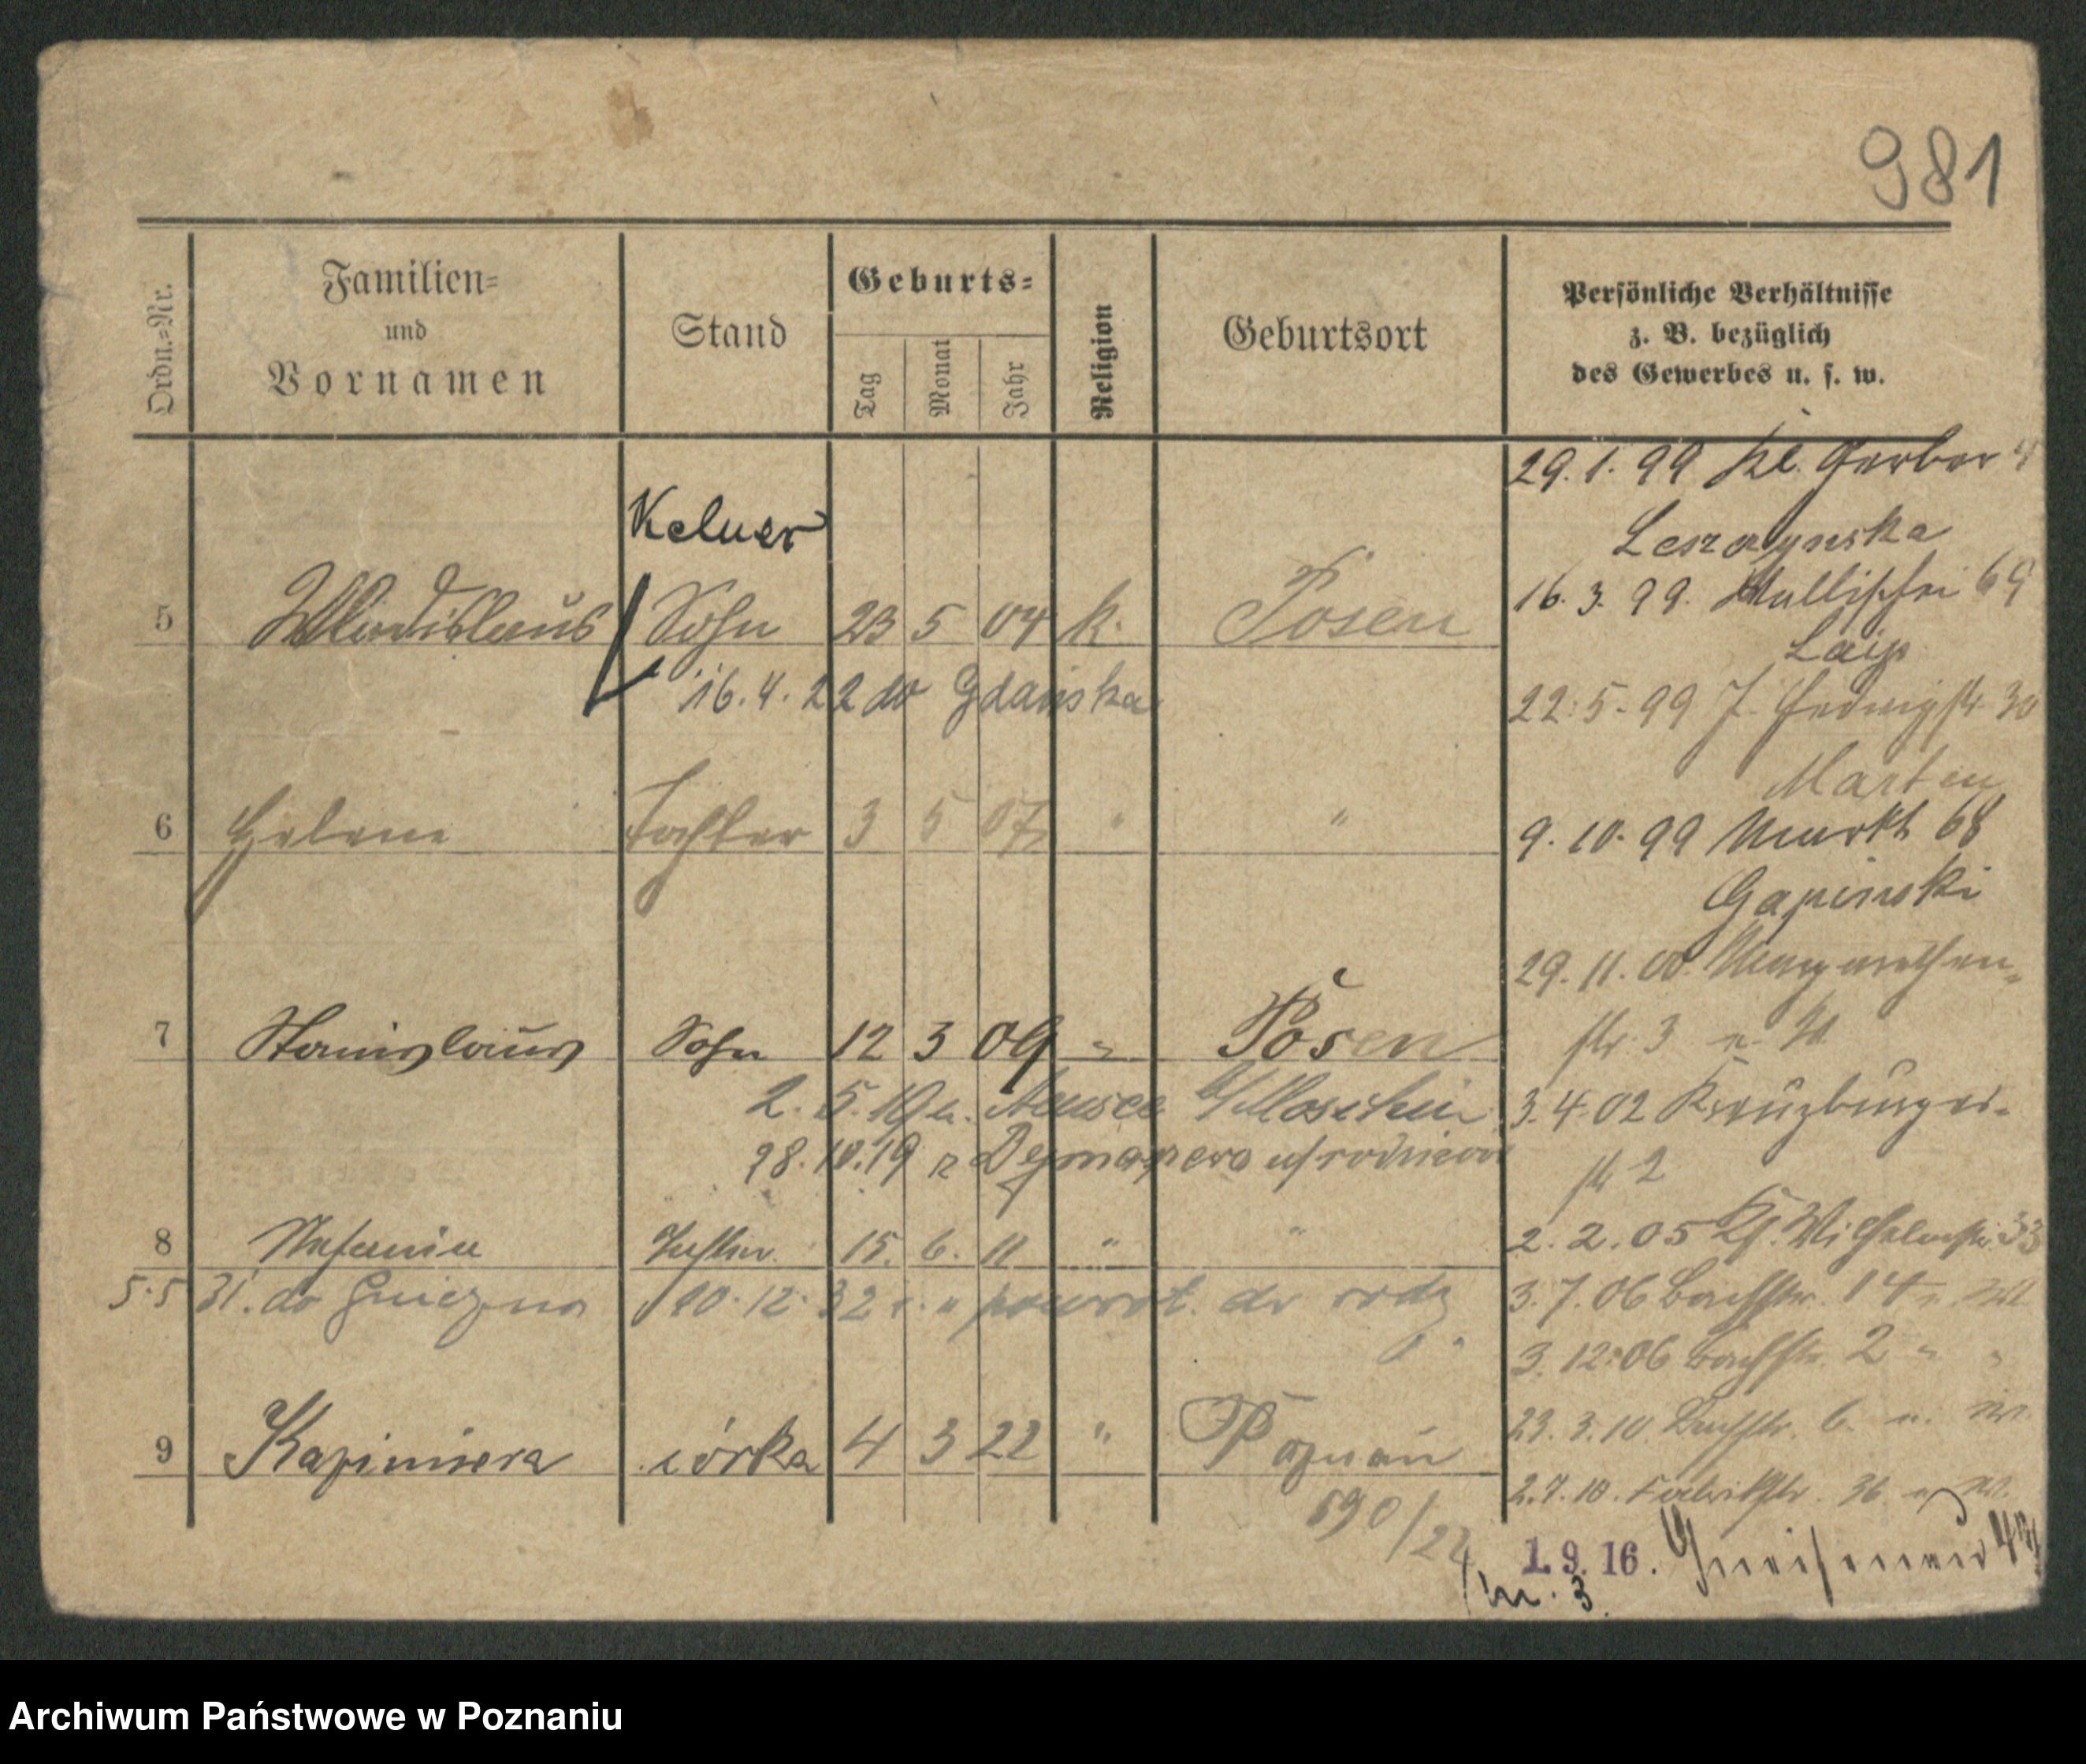 981
Ordn.-Nr.
Familien- und Vornamen
Stand
Geburts-
Tag Monat Jahr
Religion
Geburtsort
Persönliche Verhältnisse
z. B. bezüglich
des Gewerbes u. s. w.
Kelner
5 Wladislaus Sohn 23 5 04 k. Posen
16.4.22 do Gdańska
6 Helene Tochter 3 5 07 " "
7 Stanislaus Sohn 12 3 09 " Posen
2. 5. 19 n. Moschin
28.10.19 z
8 Stefania Tochter 15. 6. 11 " "
5.5 31. do Gniezna 10.12.32 r. powrót. do rodz
9 Kazimiera córka 4 3 22 " Poznań
590/22
29.1.99 Kl. Gerber 4
16.3.99. 69
22.5.99 Hedwigstr. 30
Marten
9.10.99 Markt 68
Gapinski
29.11.00 Margarethen-
str. 3 n. W
3.4.02 Kreuzburger-
str 2
2.2.05 Wilhelmstr. 33
3.7.06 Bachstr. 14
3.12.06 Bachstr. 2 " "
23.3.10. Bachstr. 6
2.7.10. Fabrikstr. 36
1.9.16. Gneisenau
m. 3.
Archiwum Państwowe w Poznaniu